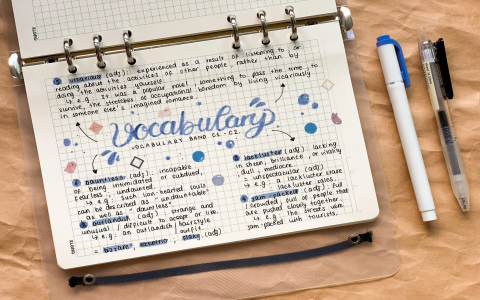 vicarious (adj): experienced as a result of listening to or
reading about the activities of other people, rather than by
doing the activities yourself.
e.g.: It was a popular novel, something to pass the time, to
survive the stretches of occupational boredom by living vicariously
in someone else's imagined romance.
vocabulary
VOCABULARY BAND C1-C2
dauntless (adj): incapable
of being intimidated or subdued,
fearless, undaunted.
e.g.: Such lion-hearted souls
can be described as "undauntable"
as well as
outlandish (adj): strange and
unusual / difficult to accept or like.
e.g.: an outlandish hairstyle
/ outfit.
= bizarre, eccentric,
lackluster (adj): lacking
in sheen, brilliance, or vitality
dull; mediocre.
= unspectacular (adj)
e.g.: a lackluster stare
lackluster
jam-packed (adj): full
/crowded; full of people that
are pushed closely together.
e.g.: The streets were
jam-packed with tourists.